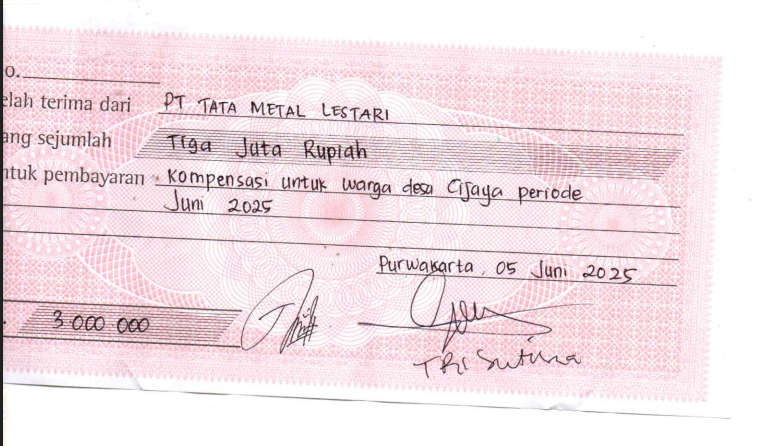 o.
elah terima dari PT TATA METAL LESTARI
ang sejumlah Tiga Juta Rupiah
ntuk pembayaran Kompensasi untuk warga desa Cijaya periode
Juni 2025
Purwakarta, 05 Juni 2025
. 3 000 000
TRI Sutisna